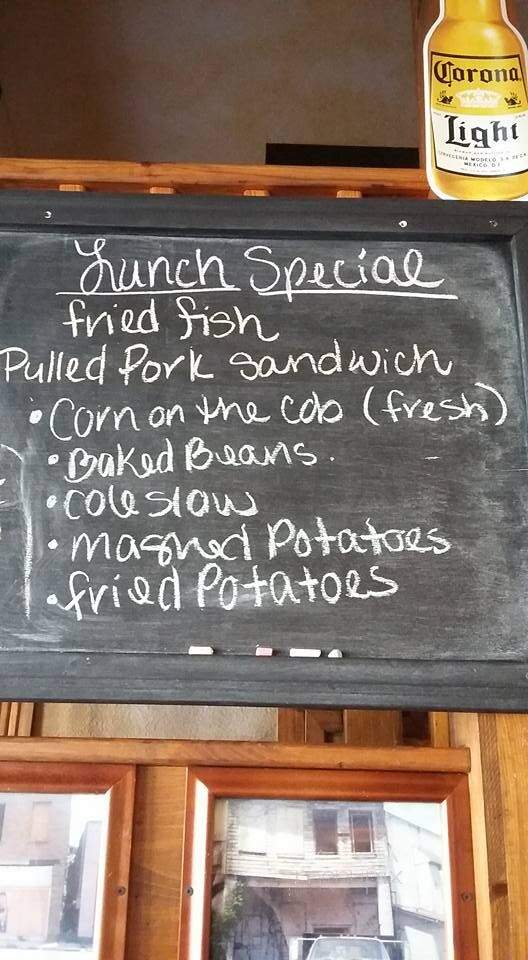 Corona
Light
CERVECERIA MODELO S.A. DE C.V.
MEXICO, D.F.
Lunch Special
fried fish
Pulled Pork sandwich
• Corn on the cob (fresh)
• Baked Beans.
• cole slaw
• mashed Potatoes
• fried Potatoes